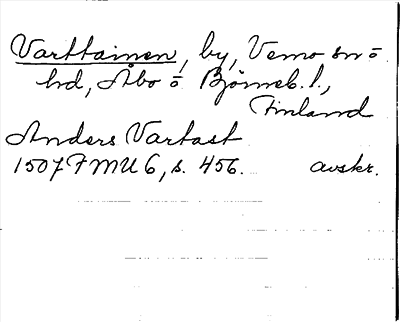 Varttainen, by, Vemo sn o
hd, Åbo o Björneb. l.,
Finland
Anders Vartast
1507 FMU 6, s. 456. avskr.